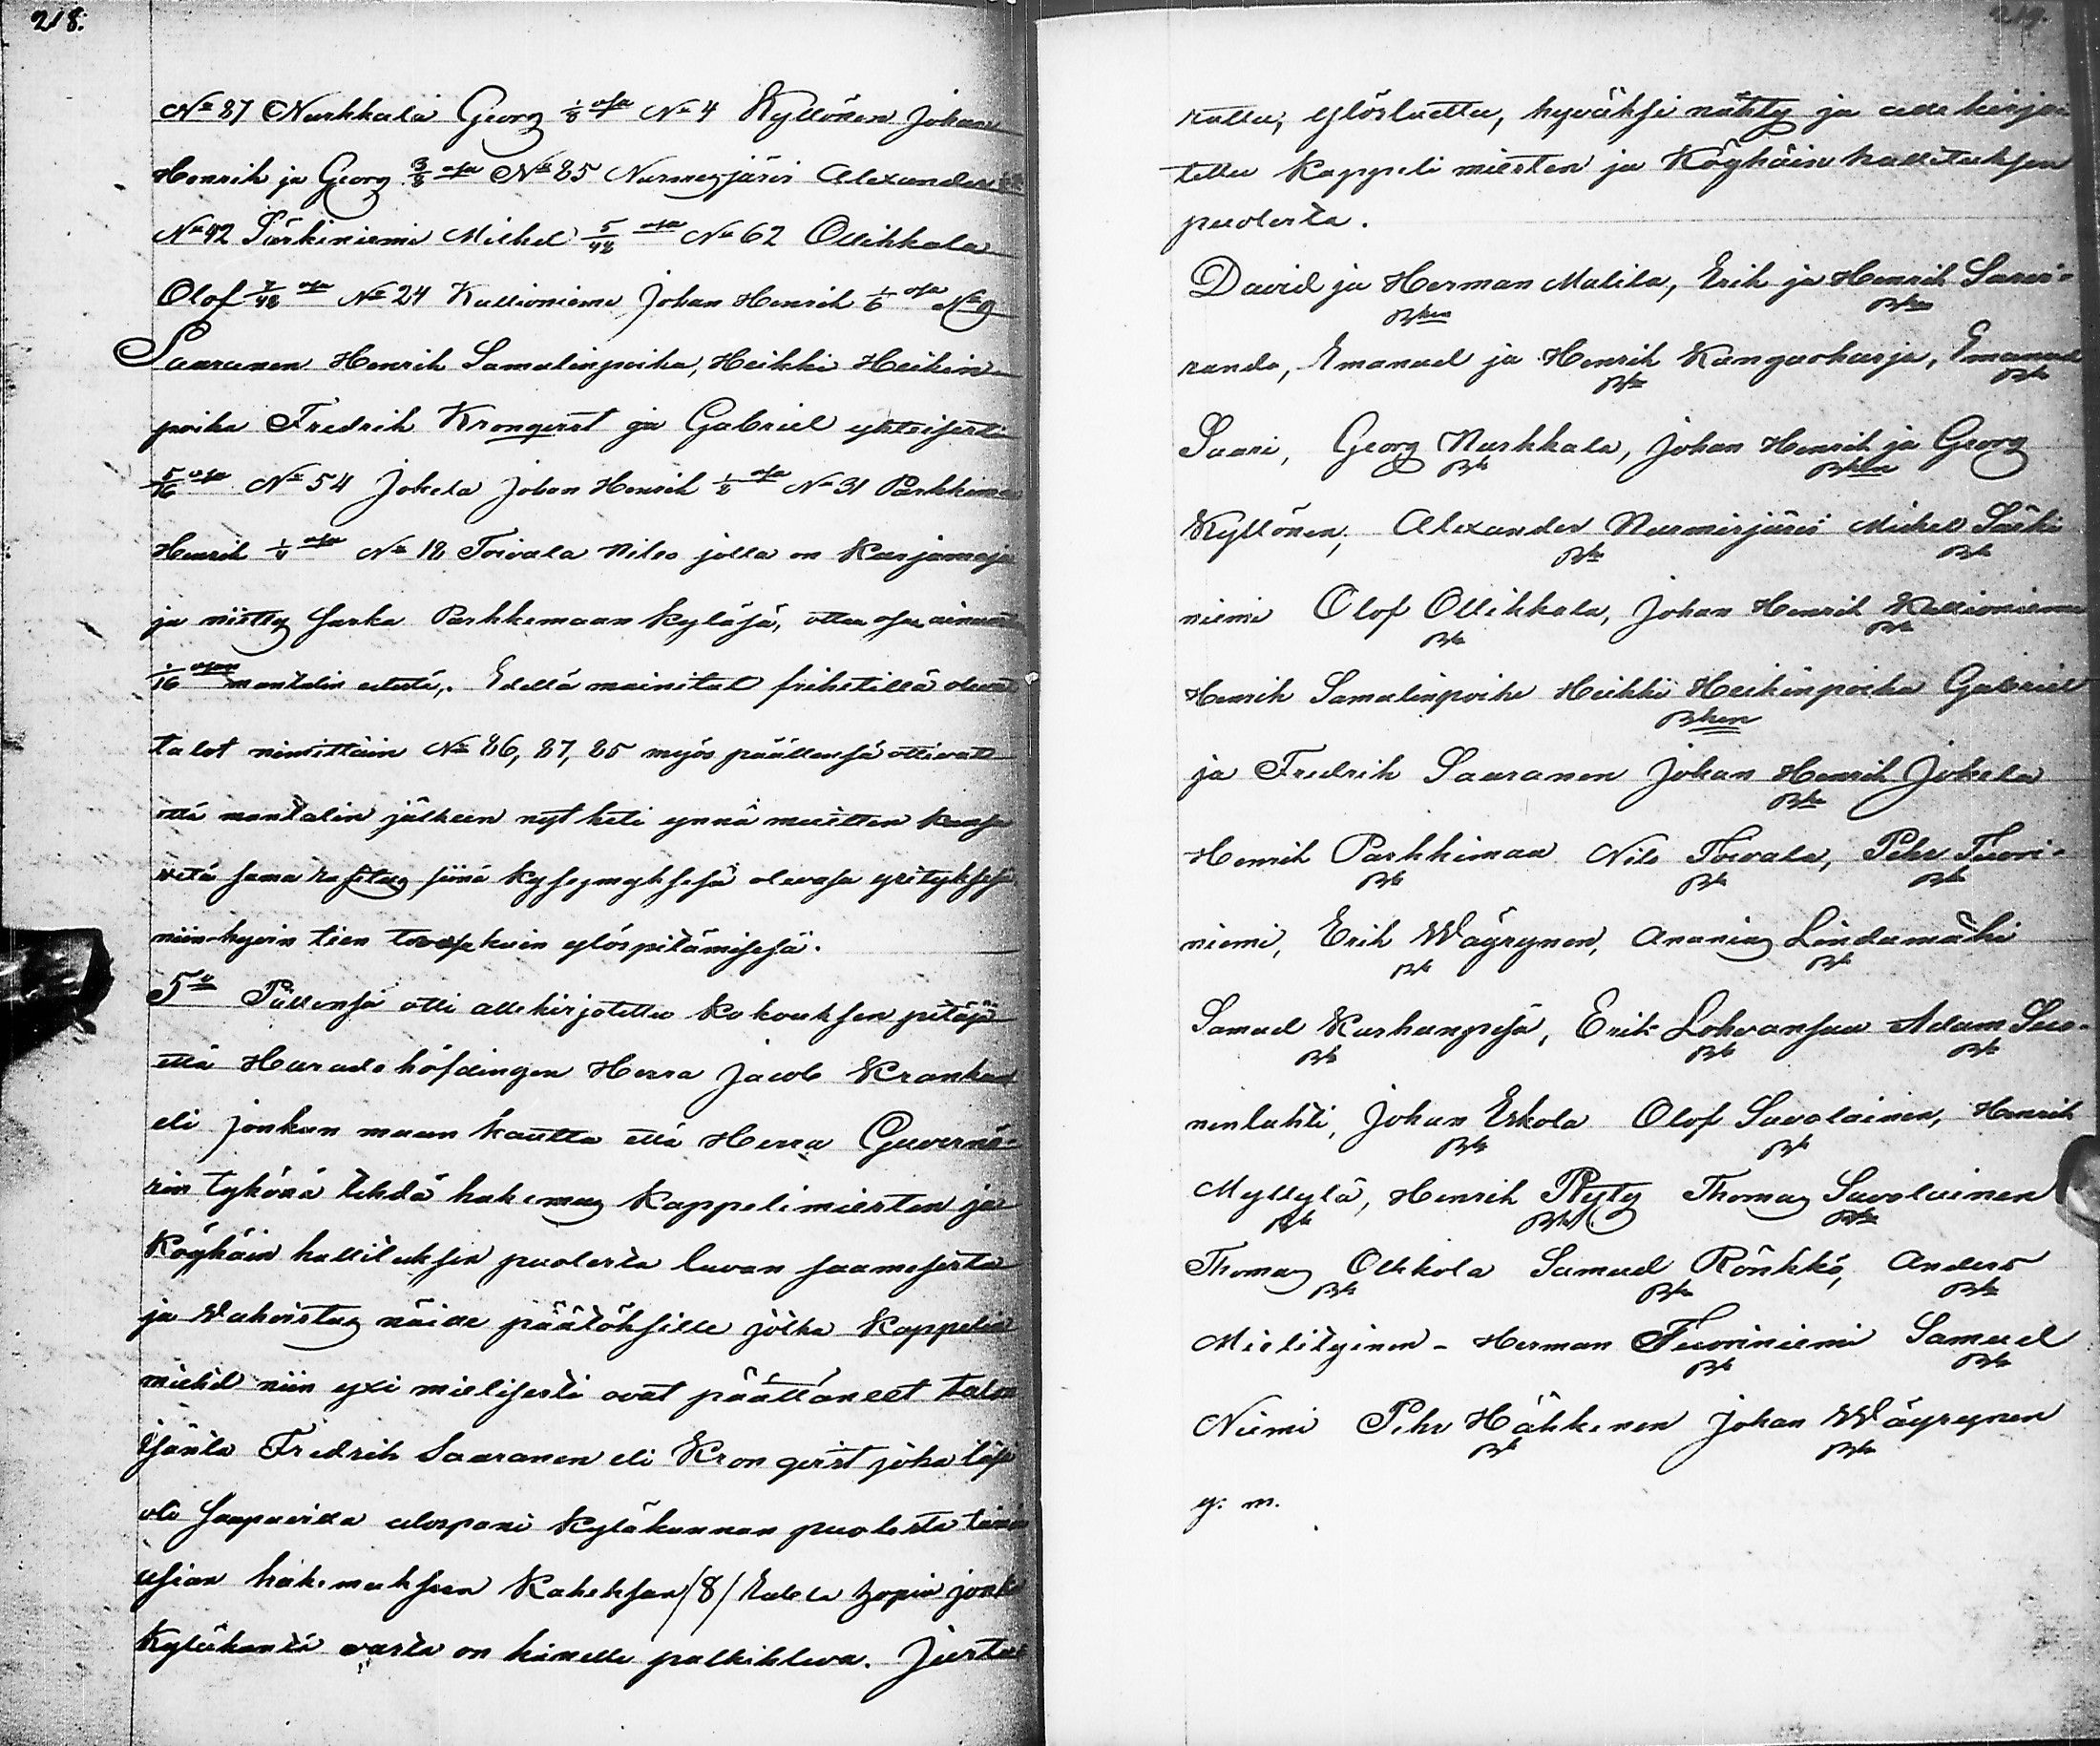 218.
No 87 Nurkkala Georg 1/8 osa No 4 Kyllönen Johan
Henrik ja Georg 3/8 osa No 85 Nurmesjärvi Alexander
No 42 Särkiniemi Mickel 5/48 osa No 62 Ollikkala
Olof 7/48 osa No 24 Kallioniemi Johan Henrik 1/6 osa No 9
Saaranen Henrik Samulinpoika, Heikki Heikin-
poika Fredrik Kronqvist ja Gabriel yhteisesti
5/16 osa No 54 Jokela Johan Henrik 1/8 osa No 31 Parkkimaa
Henrik 1/4 osa No 18 Toivala Nils jolla on Karjamaja
ja niitty sarka Parkkemaan Kyläsä, ottaa osaa ainoasti
1/16 osan mantalin edestä. Edellä mainitut frihetillä olevat
talot nimittäin No 86, 87, 85 myös päällensä ottivatt
että mantalin jälkeen nyt heti ynnä muitten kansa
vetä sama rasitus siinä kysymyksesä olevasa yrityksesä
niin hyvin tien teosa kuin ylöspitämisesä.
5o Pällensä otti allekirjotettu Kokouksen pitäjä
että Häradshöfdingen Herra Jacob Krankan
eli jonkun muun kautta että Herra Guvernö-
rin tykönä tehdä hakemus Kappelimiesten ja
Köyhäin hallituksen puolesta luvan saamisesta
ja Wahvistus näille päätöksille jotka Kappelin
miehet niin yximielisesti ovat päättäneet talon
isäntä Fredrik Saaranen eli Kronqvist joka läsä
oli saapuvilla ulospani Kyläkunnan puolesta tämän
asian hakemukseen Kaheksan /8/ Rubla hopia jonka
Kyläkunta vasta on hänelle palkihteva. Justee-
219.
rattu, ylösluettu, hyväksi nähty ja alle kirjoi-
tettu Kappeli miesten ja Köyhäin hallituksen
puolesta.
David ja Herman Matila, Erik ja Henrik Saari-
Bken Bken
randa, Emanuel ja Henrik Kangasharja, Emanuel
Bkn Bk
Saari, Georg Nurkkala, Johan Henrik ja Georg
Bk Bken
Kyllönen, Alexander Nurmisjärvi Mickel Särki-
Bk Bk
niemi Olof Ollikkala, Johan Henrik Kallioniemi
Bk Bk
Henrik Samulinpoika Heikki Heikinpoika Gabriel
Bken
ja Fredrik Saaranen Johan Henrik Jokela
Bk
Henrik Parkkimaa Nils Toivala, Pehr Tuori-
Bk Bk Bk
niemi, Erik Wäyrynen, Ananias Lindamäki
Bk Bk
Samuel Kurhanpesä, Erik Lohvansuu Adam Suo-
Bk Bk Bk
nenlahti, Johan Eskola Olof Savolainen, Henrik
Bk Bk
Myllylä, Henrik Ryty Thomas Savolainen
Bk Bk Bk
Thomas Olkkola Samuel Rönkkö, Anders
Bk Bk Bk
Mielityinen - Herman Tuoriniemi Samuel
Bk Bk
Niemi Pehr Häkkinen Johan Wäyrynen
Bk Bk
y. m.